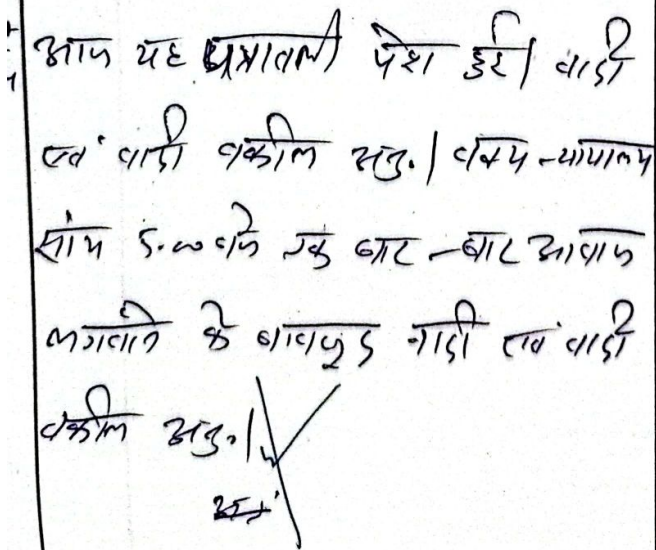 आज यह पत्रावली पेश हुई। वादी
एवं वादी वकील अनु.। वक्त न्यायालय
सांय 5.00 बजे तक बार-बार आवाज
लगवाने के बावजूद वादी एवं वादी
वकील अनु.।